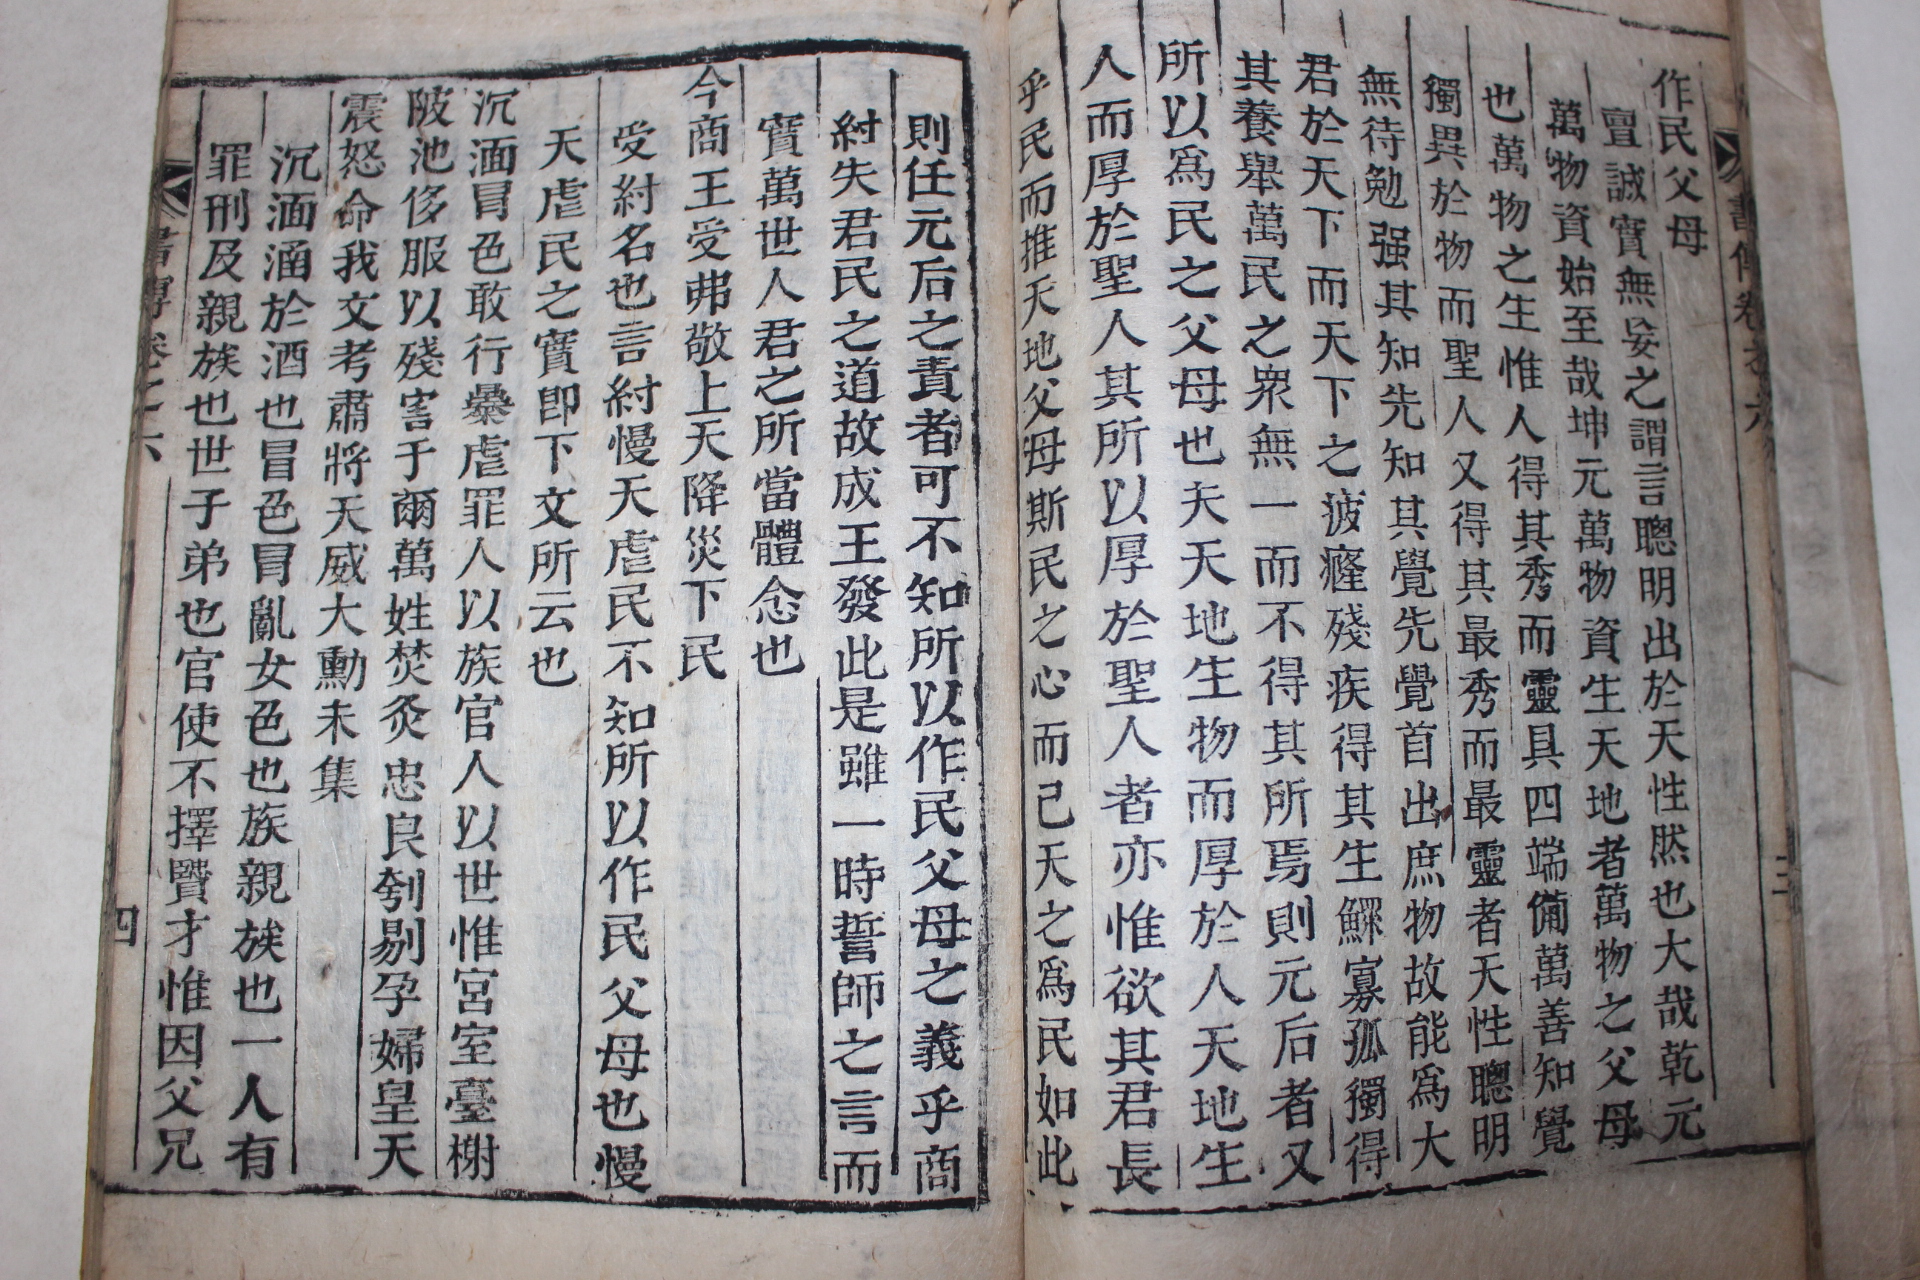 書傳卷之六
三
作民父母
亶誠實無妄之謂言聰明出於天性然也大哉乾元
萬物資始至哉坤元萬物資生天地者萬物之父母
也萬物之生惟人得其秀而靈具四端備萬善知覺
獨異於物而聖人又得其最秀而最靈者天性聰明
無待勉强其知先知其覺先覺首出庶物故能爲大
君於天下而天下之疲癃殘疾得其生鰥寡孤獨得
其養舉萬民之衆無一而不得其所焉則元后者又
所以爲民之父母也夫天地生物而厚於人天地生
人而厚於聖人其所以厚於聖人者亦惟欲其君長
乎民而推天地父母斯民之心而已天之爲民如此
則任元后之責者可不知所以作民父母之義乎商
紂失君民之道故成王發此是雖一時誓師之言而
實萬世人君之所當體念也
今商王受弗敬上天降災下民
受紂名也言紂慢天虐民不知所以作民父母也慢
天虐民之實卽下文所云也
沉湎冒色敢行暴虐罪人以族官人以世惟宮室臺榭
陂池侈服以殘害于爾萬姓焚炙忠良刳剔孕婦皇天
震怒命我文考肅將天威大勳未集
沉湎溺於酒也冒色冒亂女色也族親族也一人有
罪刑及親族也世子弟也官使不擇賢才惟因父兄
書傳卷之六
四